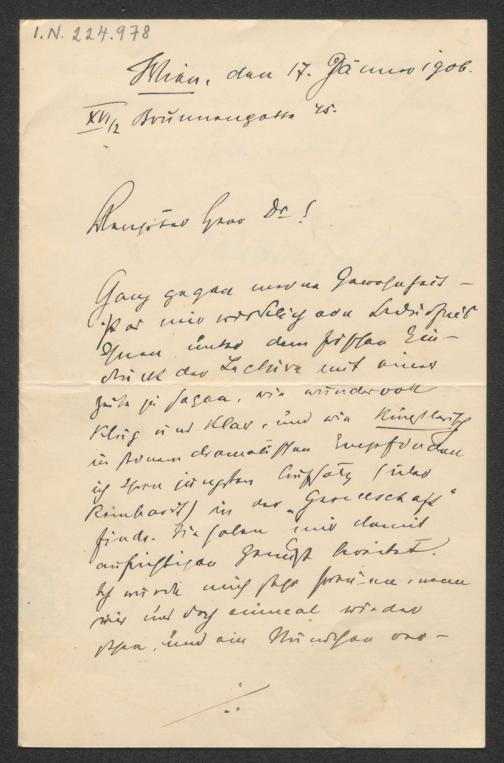 I.N. 224.978
Wien, den 17. Jänner 1906.
XVI/2 Brunnengasse 45.
Verehrter Herr Dr!
Ganz gegen meine Gewohnheit –
ist es mir wirklich ein Bedürfnis
Ihnen unter dem frischen Ein-
druck der Lectüre mit einer
Zeile zu sagen, wie wundervoll
klug und klar, und wie künstlerisch
in seinem dramatischen Empfinden
ich Ihren jüngsten Aufsatz (über
Reinhardt) in der „Gesellschaft"
finde. Sie haben mir damit
aufrichtigen Genuß bereitet.
Ich würde mich sehr freuen, wenn
wir uns doch einmal wieder
sehen, und ein Stündchen ver-